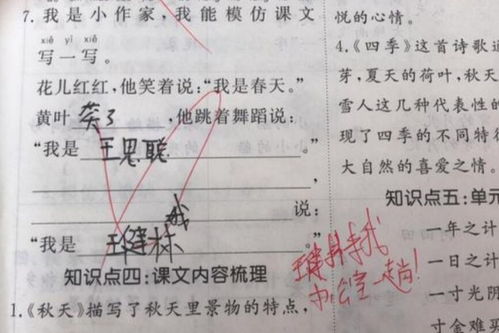 7.我是小作家,我能模仿课文
xiě yì xiě
写一写。
花儿红红,他笑着说:“我是春天。”
黄叶笑了,他跳着舞蹈说:
“我是王思聪。”
,
我说:
“我是王健林。”
知识点四:课文内容梳理
1.《秋天》描写了秋天里景物的特点,
王健林来我
办公室一趟!
悦的心情。
4.《四季》这首诗歌
芽,夏天的荷叶,秋天
雪人这几种代表性的
现了四季的不同特
大自然的喜爱之情。
知识点五:单元
一年之计
一日之计
一寸光阴
寸金难买